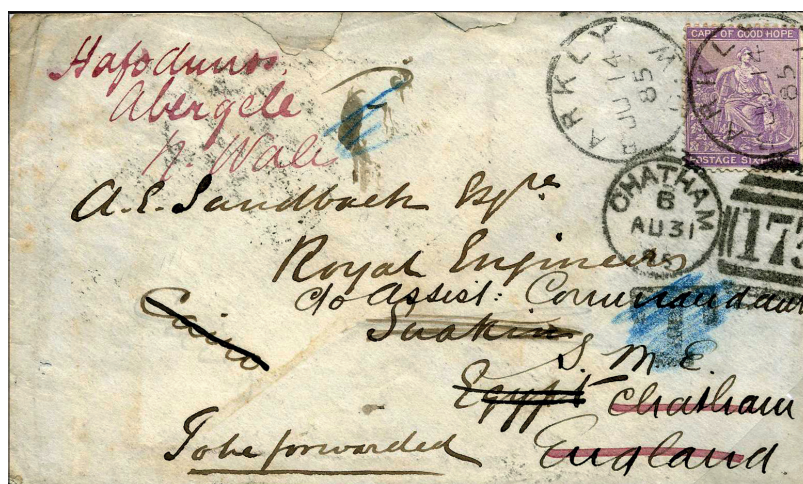 Hafodunos.
Abergele
N. Wales
CAPE OF GOOD HOPE
POSTAGE SIX
BARKLY W
JU 14
85
BARKLY
85
CHATHAM
B
AU 31
85
175
A. E. Sandbach Esqre
Royal Engineers
c/o Assist: Commandant
Suakin
Cairo
S. M. E.
Egypt Chatham
To be forwarded England
T